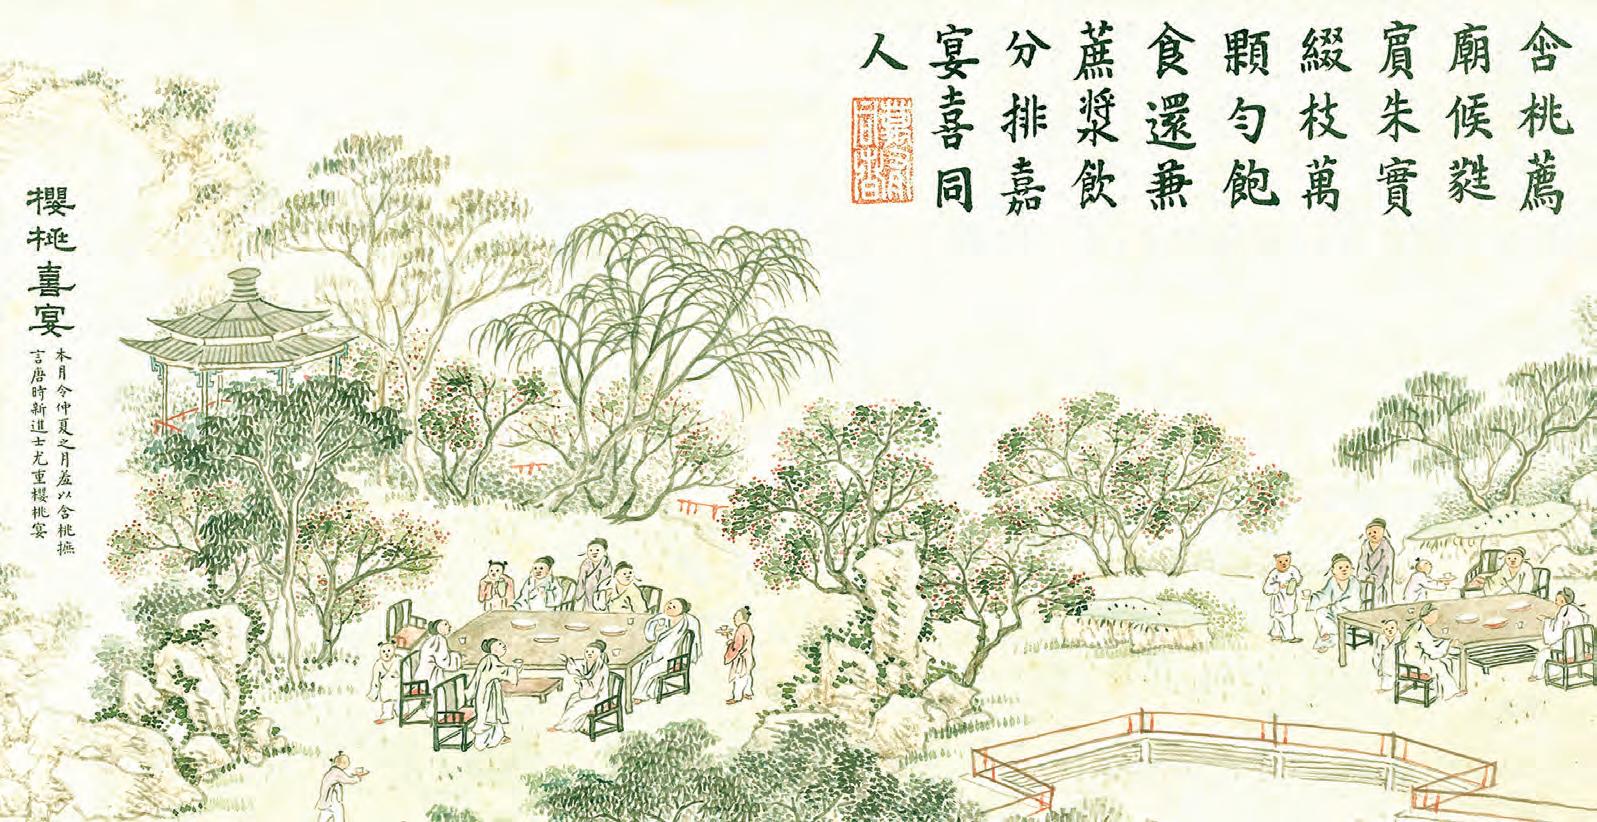 含桃薦
廟候蕤
賔朱實
綴枝萬
顆勻飽
食還兼
蔗漿飲
分排嘉
宴喜同
人
櫻桃喜宴
本月令仲夏之月羞以含桃摭
言唐時新進士尤重櫻桃宴